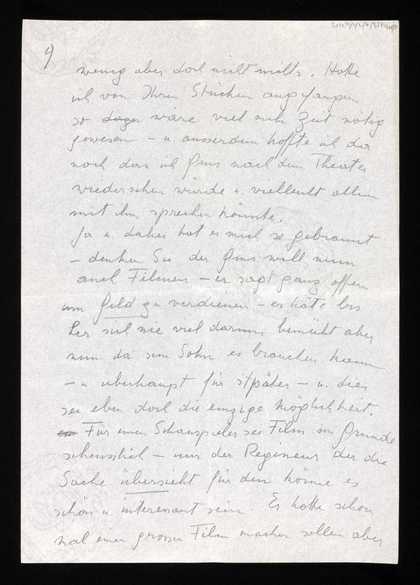 9
wenig aber doch nicht nichts. Hätte
ich von Ihren Stücken angefangen
so wäre viel mehr Zeit nötig
gewesen – u ausserdem hoffte ich da
noch dass ich nach dem Theater
wiedersehen würde u. vielleicht allein
mit ihm sprechen könnte.
Ja u. daher hat es mich so gebrannt
– denken Sie der will nun
auch Filmen – er sagt ganz offen
um Geld zu verdienen – er hätte
sich nie viel darum bemüht aber
nun da sein Sohn es brauchen kann
– u überhaupt für später – u. dies
sei eben doch die einzige Möglichkeit.
Für einen Schauspieler sei Film im Grunde
– nur der Regisseur der die
Sache übersieht für den könne es
schön u interessant sein. Er hätte schon
mal einen grossen Film machen sollen aber